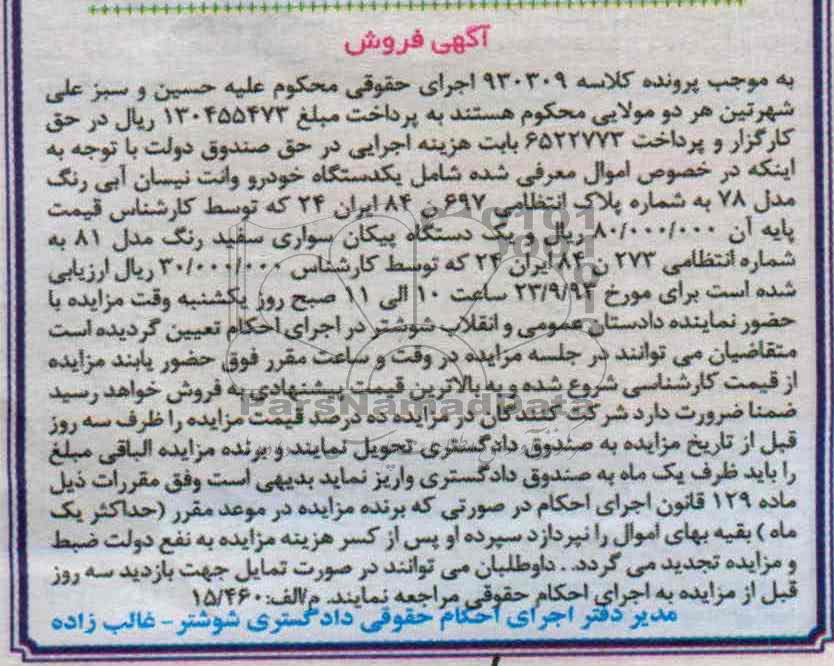 آگهی فروش
به موجب پرونده کلاسه ۹۳۰۳۰۹ اجرای حقوقی محکوم علیه حسین و سبز علی
شهرتین هر دو مولایی محکوم هستند به پرداخت مبلغ ۱۳۰۴۵۵۴۷۳ ریال در حق
کارگزار و پرداخت ۶۵۲۲۷۷۳ بابت هزینه اجرایی در حق صندوق دولت با توجه به
اینکه در خصوص اموال معرفی شده شامل یکدستگاه خودرو وانت نیسان آبی رنگ
مدل ۷۸ به شماره پلاک انتظامی ۶۹۷ ن ۸۴ ایران ۲۴ که توسط کارشناس قیمت
پایه آن ۸۰/۰۰۰/۰۰۰ ریال و یک دستگاه پیکان سواری سفید رنگ مدل ۸۱ به
شماره انتظامی ۲۷۳ ن ۸۴ ایران ۲۴ که توسط کارشناس ۳۰/۰۰۰/۰۰۰ ریال ارزیابی
شده است برای مورخ ۲۳/۹/۹۳ ساعت ۱۰ الی ۱۱ صبح روز یکشنبه وقت مزایده با
حضور نماینده دادستان عمومی و انقلاب شوشتر در اجرای احکام تعیین گردیده است
متقاضیان می توانند در جلسه مزایده در وقت و ساعت مقرر فوق حضور یابند مزایده
از قیمت کارشناسی شروع شده و به بالاترین قیمت پیشنهادی به فروش خواهد رسید
ParsNamadData
ضمنا ضرورت دارد شرکت کنندگان در مزایده ده درصد قیمت مزایده را ظرف سه روز
قبل از تاریخ مزایده به صندوق دادگستری تحویل نمایند و برنده مزایده الباقی مبلغ
را باید ظرف یک ماه به صندوق دادگستری واریز نماید بدیهی است وفق مقررات ذیل
ماده ۱۲۹ قانون اجرای احکام در صورتی که برنده مزایده در موعد مقرر (حداکثر یک
ماه ) بقیه بهای اموال را نپردازد سپرده او پس از کسر هزینه مزایده به نفع دولت ضبط
و مزایده تجدید می گردد. . داوطلبان می توانند در صورت تمایل جهت بازدید سه روز
قبل از مزایده به اجرای احکام حقوقی مراجعه نمایند. م/الف:۱۵/۴۶۰
مدیر دفتر اجرای احکام حقوقی دادگستری شوشتر - غالب زاده